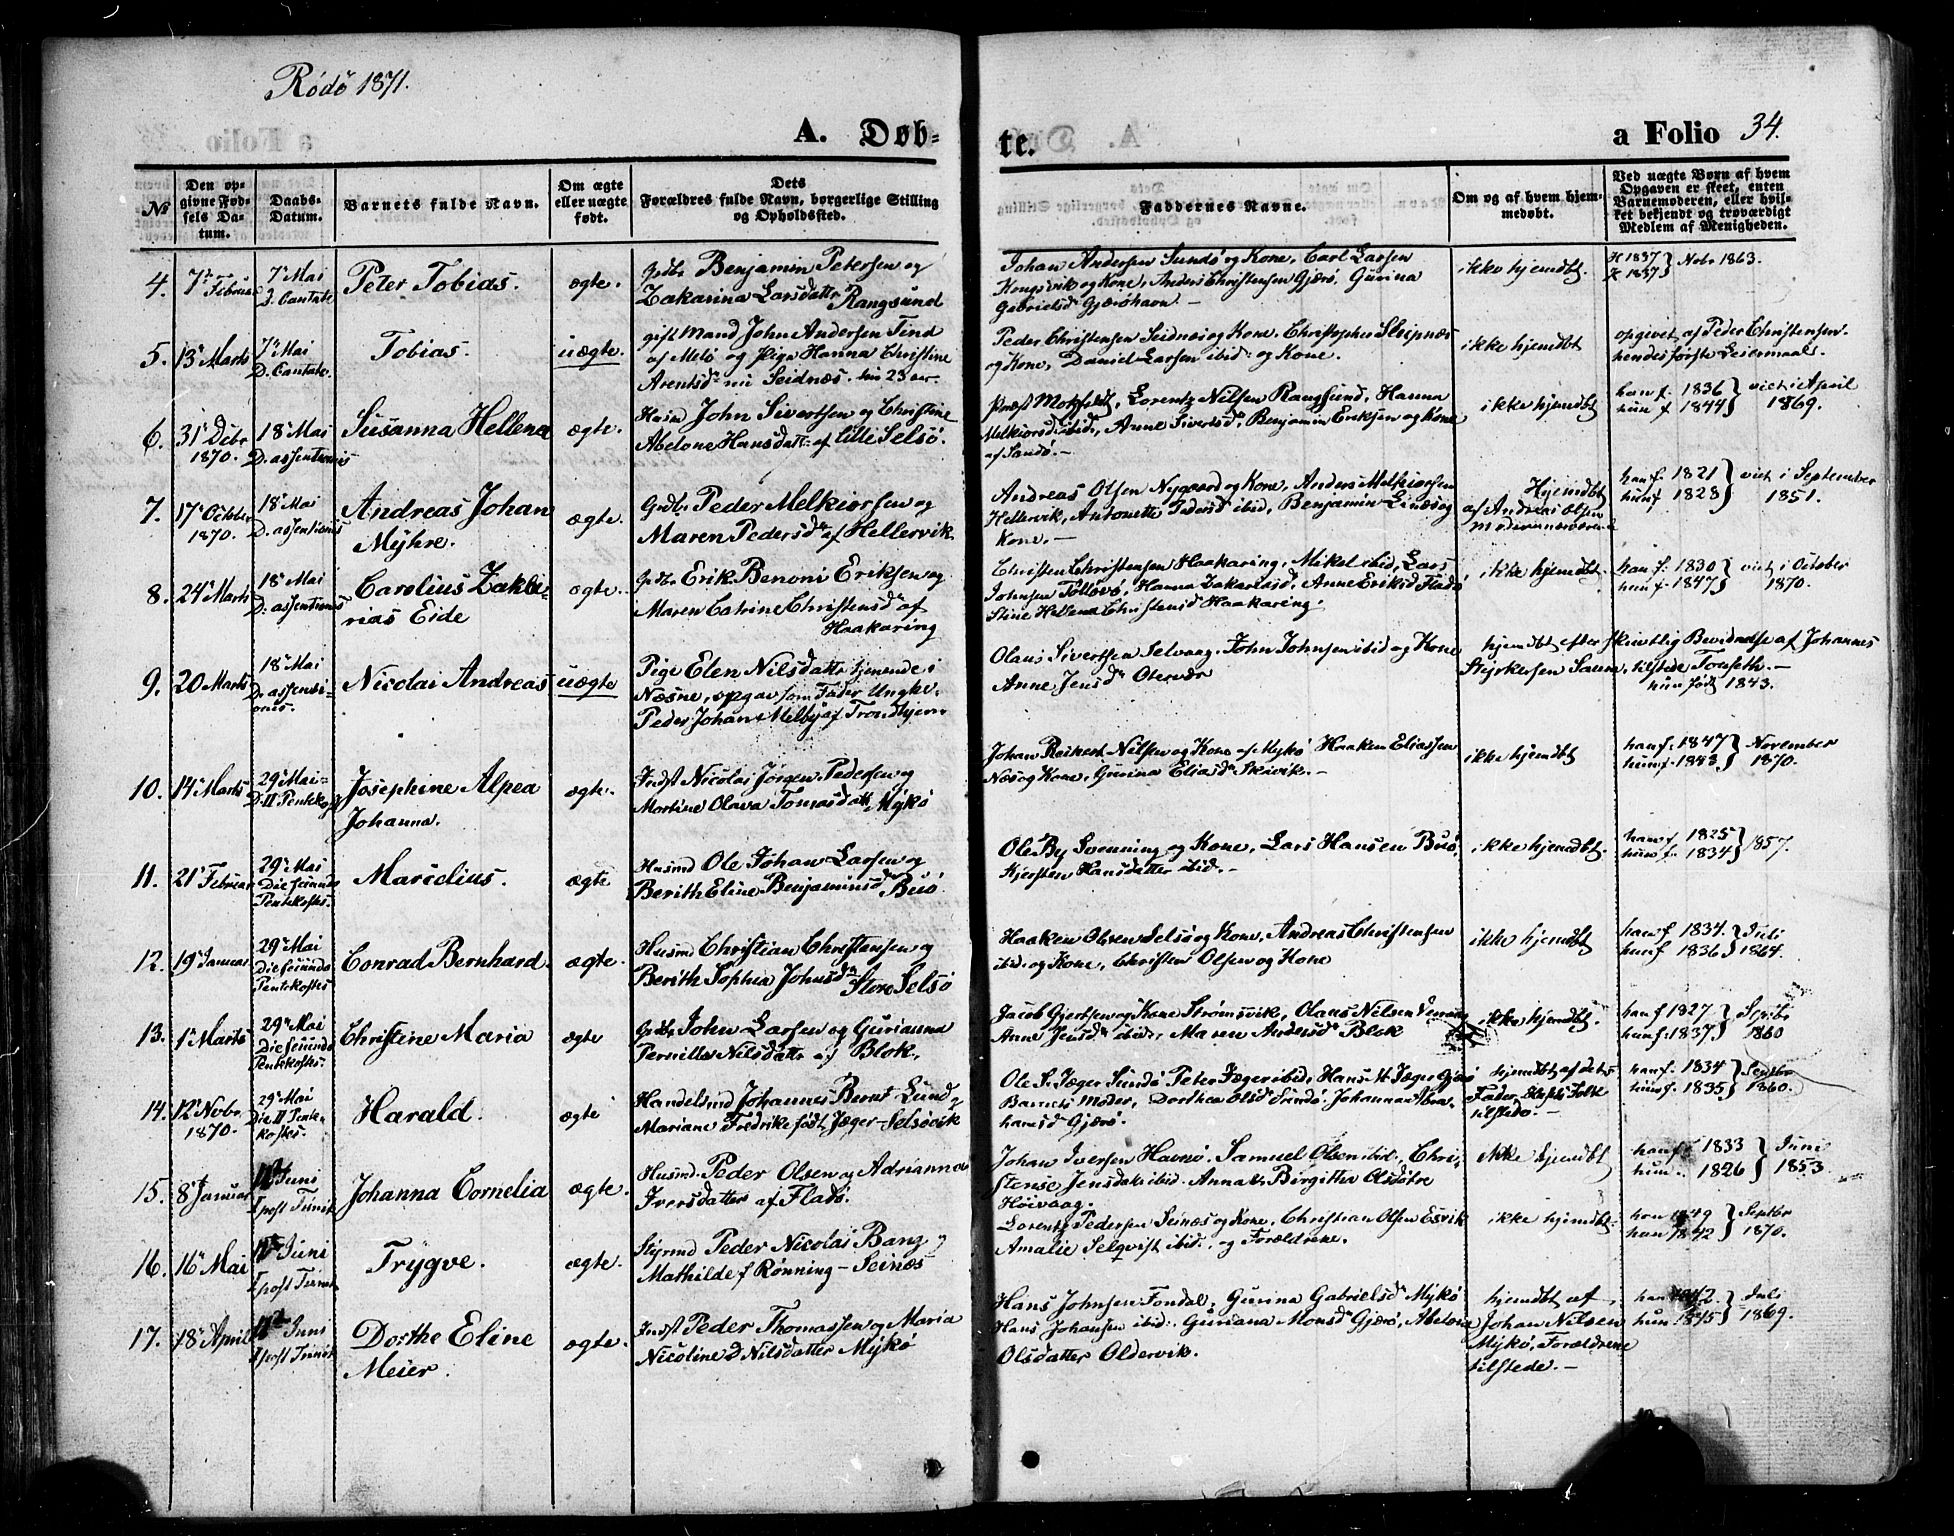 Rødø 1871.
A. Døb-
te.
a Folio 34.
№
Den op-
givne Fød-
sels Da-
tum.
Daabs-
Datum.
Barnets fulde Navn.
Om ægte
eller uægte
født.
Dets
Forældres fulde Navn, borgerlige Stilling
og Opholdssted.
Faddernes Navne.
Om og af hvem hjem-
medøbt.
Ved uægte Børn af hvem
Opgaven er skeet, enten
Barnemoderen, eller hvil-
ket bekjendt og troværdigt
Medlem af Menigheden.
4.
7de Februar
7de Mai
D. Cantate
Peter Tobias.
ægte.
Gdbr Benjamin Petersen og
Zakarina Larsdatter Rangsund
Johan Andersen Sundø og Kone, Carl Larsen
Kongsvik og Kone, Anders Christensen Gjærø, Gurina
Gabrielsd Gjærøhavn –
ikke hjemdbt.
1837
1837 Nobr 1863.
5.
13 Marts
7de Mai
D. Cantate.
Tobias.
uægte.
gift Mand John Andersen Tind
af Melø og Pige Hanna Christine
Arentsdr Seidnæs. hun 23 aar.
Peder Christensen Seidnæs og Kone, Christopher Sleipnæs
og Kone, Daniel Larsen ibid: og Kone.
ikke hjemdbt
opgivet af Peder Christensen.
hendes første Leiermaal.
6.
31 Debr
1870.
18 Mai
D. assentionis
Susanna Hellena
ægte.
Husm John Sivertsen og Christine
Abelone Hansdatt: af lille Selsø.
Præst Motzfeldt, Lorentz Nilsen Rangsund, Hanna
Melkiorsd ibid, Anne Sivertsd, Benjamin Eriksen og Kone
af Sandø. –
ikke hjemdbt
han f. 1836
hun f 1844
viet i April
1869.
7.
17 October
1870.
18 Mai
D. assentionis
Andreas Johan
Myhre.
ægte.
Gdbr Peder Melkiorsen og
Maren Pedersd af Hellervik.
Andreas Olsen Nygaard og Kone, Anders Melkiorsen
Hellervik, Antonette Pedersd ibid, Benjamin og
Kone. –
Hjemdbt
af Andreas Olsen
han f. 1821
hun f 1823
viet i September
1851.
8.
24 Marts
18 Mai
D. assentionis
Carolius Zakke-
rias Eide
ægte.
Gdbr Erik Benoni Eriksen og
Maren Catrine Christensd af
Haakaring
Christen Christensen Haakaring, Mikel ibid, Lars
Johnsen, Hanna Zakariasd, Anne Eriksd Fladø
Stine Hellena Christensd Haakaring.
ikke hjemdbt.
han f. 1830
hun f 1847
viet i October
1870.
9.
20 Marts
18 Mai
D. assensi-
onis.
Nicolai Andreas
uægte
Pige Elen Nilsdatter tjenende i
Næsne, opgav som Fader Ungke.
Peder Johan Melby af Trondhjem
Olaus Sivertsen Selvaag, John Johnsen ibid og Kone
Anne Jensd Otervær
hjemdbt efter skriftlig Bevidnelse af Johannes
Styrkersen Saura, tilstede Tonseth. –
hun født 1843.
10.
14 Marts
29 Mai
D. II Pentekost
Josephine Alpea
Johanna.
ægte.
Indst Nicolai Jørgen Pedersen og
Martine Olava Tomasdatt Mykø
Johan Reikert Nilsen og Kone af Mykø Haaken Eliassen
Næs og Kone, Gurina Eliasd Skivik. –
ikke hjemdbt
han f. 1847
hun f. 1843
November
1870.
11.
21 Februar
29 Mai
Die secundo
Pentekostes.
Marselius.
ægte
Husmd Ole Johan Larsen og
Berith Eline Benjaminsd Buø
Ole By Svenning og Kone, Lars Hansen Buø,
Kjersten Hansdatter ibid. –
ikke hjemdbt.
han f. 1825
hun f. 1834
1857.
12.
19 Januar
29 Mai
Die secundo
Pentekostes
Conrad Bernhard.
ægte.
Husmd Christian Christensen og
Berith Sophia Johnsd
Store Selsø
Haaken Olsen Selsø og Kone, Andreas Christensen
ibid. og Kone, Christen Olsen og Kone
ikke hjemdbt
han f. 1834.
hun f 1836
Juli
1864.
13.
1 Marts
29 Mai
Die secundo
Pentekostes.
Christine Maria
ægte
Gdbr John Larsen og Gurianna
Pernille Nilsdatt: af Blok.
Jacob Gjertsen og Kone Strømsvik, Olaus Nilsen
Anne Jensd ibid., Maren Andersd Blok
ikke hjemdbt.
han f 1827
han f. 1837
Septbr
1860
14.
12 Nobr
1870.
29 Mai
Die II Pente-
kostes.
Harald.
ægte
Handelsmd Johannes Bernt Lund og
Mariane Fredrike født Jæger – Selsøvik
Ole S. Jæger Sundø Peter Jæger ibid, Hans M. Jæger Gjærø
Barnets Moder, Dorthea Olsd Sundø. Johanna Abra-
hamsd Gjærø.
hjemdbt af dets
Fader, Folk
tilstede. –
han f. 1834
hun f. 1835
Septbr
1860.
15.
8 Januar
Juni
I post Trinit
Johanna Cornelia
ægte.
Husmd Peder Olsen og Adrianna
Iversdatter af Fladø.
Johan Iversen Havnø. Samuel Olsen ibid., Chri-
stense Jensdak ibid. Anna Birgitta Olsdotre
Høivaag.
ikke hjemdbt
han f. 1833
hun – 1826
Juni
1853
16.
16 Mai
Juni
I post Trinit
Trygve.
ægte.
Styrmd Peder Nicolai Bang og
Mathilde f Rønning – Seinæs
Lorentz Pedersen Seinæs og Kone, Christian Olsen Esvik
Amalie Selqvist ibid., og Forældrene.
ikke hjemdbt.
han 1849
hun 1842
Septbr
1870.
17.
18 April
Juni
I post Trinit
Dorthe Eline
Meier.
ægte.
Indst Peder Thomassen og Maria
Nicoline D Nilsdatter Mykø
Hans Johnsen Fondal, Gurina Gabrielsd Mykø
Hans Johansen ibid. Guriana Monsd Gjærø, Abelona
Olsdatter Oldervik.
hjemdbt af
Johan Nilsen
Mykø, Forældrene
tilstede. –
han 1842.
hun 1845
Juli
1869.